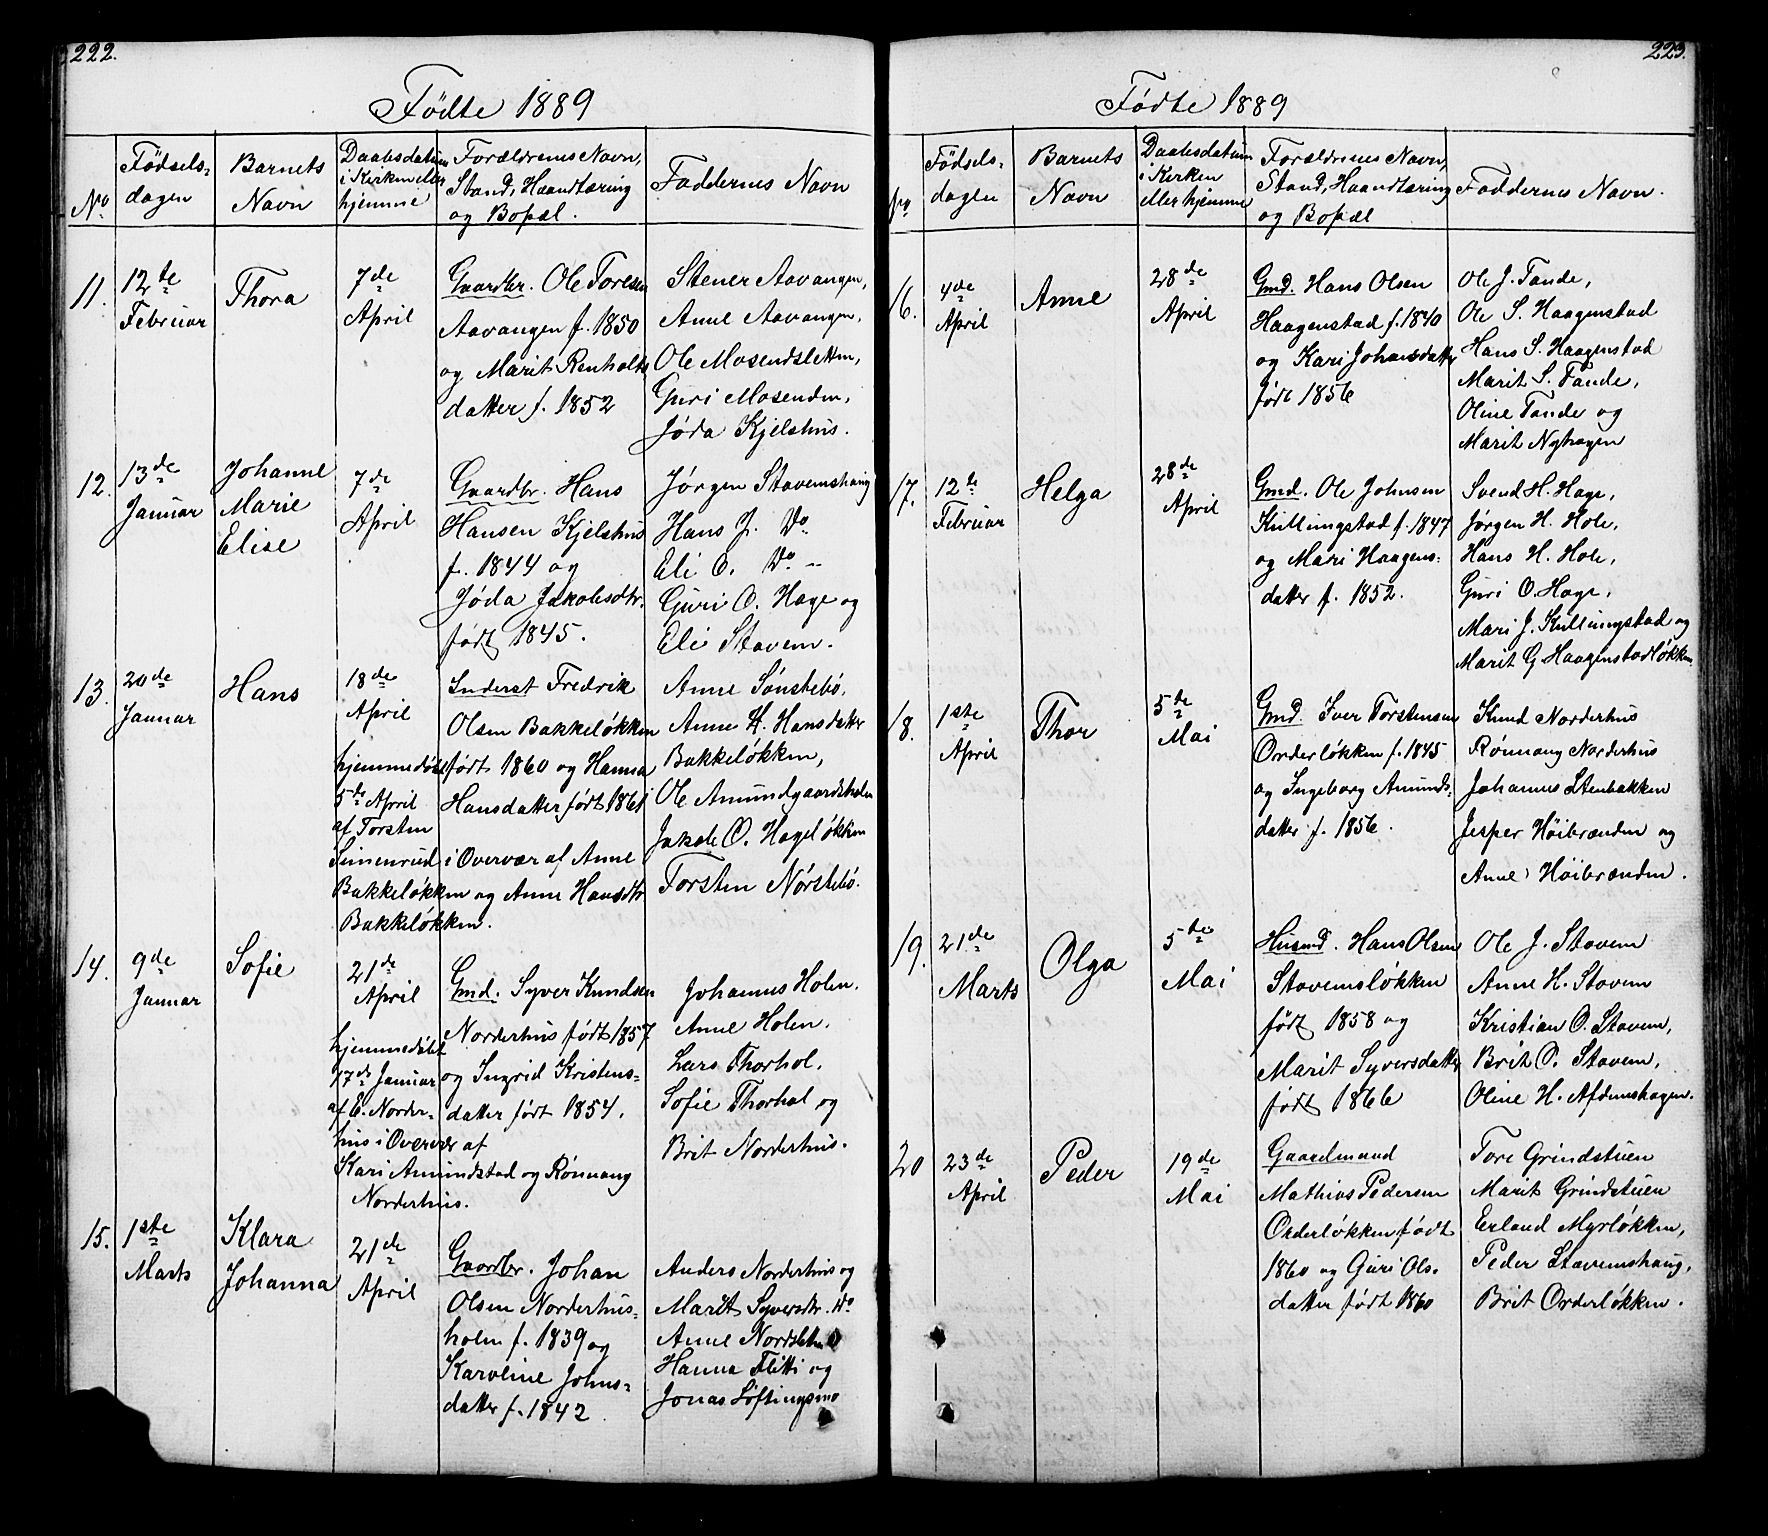 222.
Fødte 1889
No
Fødsels-
dagen
Barnets
Navn
Daabsdatum
i Kirken eller
hjemme
Forældrenes Navn,
Stand, Haandtæring
og Bopæl.
Faddernes Navn
11.
12te
Februar
Thora
7de
April
Gaardbr. Ole Toresen
Aavangen f. 1850
og Marit Renholts
datter f. 1852
Stener Aavangen,
Anne Aavangen,
Ole Mosendsletten,
Guri Mosenden,
Jøda Kjelshus.
12.
13de
Januar
Johanne
Marie
Elise
7de
April
Gaardbr. Hans
Hansen Kjelshus
f. 1844 og
Jøda Jakobsdtr.
født 1845.
Jørgen Stavemshaug
Hans J. Do.
Eli O. Do. -
Guri O. Hage og
Eli Stavem.
13.
20de
Januar
Hans
18de
April
hjemmedøbt
5te April
af Torsten
Simenrud i Overvær af Anne
Bakkeløkken og Anne Hansdtr.
Bakkeløkken.
Inderst Fredrik
Olsen Bakkeløkken
født 1860 og Hanna
Hansdatter født 1861
Anne Sønstebø,
Anne H. Hansdatter
Bakkeløkken,
Ole Amundgaardsholen
Jakob O. Hageløkken
Torsten Nørstebø.
14.
9de
Januar
Sofie
21de
April
hjemmedøbt
17de Januar
af E. Norder-
hus i Overvær af
Kari Amundstad og Rønnaug
Norderhus.
Gmd. Syver Knudsen
Norderhus født 1857
og Ingrid Kristens-
datter født 1854.
Johannes Holen.
Anne Holen.
Lars Thorhol.
Sofie Thorhol og
Brit Norderhus.
15.
1ste
Marts
Klara
Johanna
21de
April
Gaardbr. Johan
Olsen Norderhus-
holen f. 1839 og
Karoline Johns-
datter f. 1842
Anders Norderhus og
Marit Syversdtr. Do
Anne
Hanna Flitti og
Jonas Løftingsmo
223.
Fødte 1889
No
Fødsels-
dagen
Barnets
Navn
Daabsdatum
i Kirken
eller hjemme
Forældrenes Navn,
Stand, Haandtæring
og Bopæl
Faddernes Navn.
16.
4de
April
Anne
28de
April
Gmd. Hans Olsen
Haagenstad f. 1840
og Kari Johansdatter
født 1856
Ole J. Tande,
Ole S. Haagenstad
Hans S. Haagenstad
Marit S. Tande,
Oline Tande og
Marit Nyhagen
17.
12te
Februar
Helga
28de
April
Gmd. Ole Johnsen
Kullingstad f. 1847
og Mari Haagens-
datter f. 1852.
Svend H. Hage,
Jørgen H. Hole,
Hans H. Hole,
Guri O. Hage,
Mari J. Kullingstad og
Marit G Haagenstadløkken
18.
1ste
April
Thor
5te
Mai
Gmd. Iver Torstensen
Orderløkken f. 1845
og Ingeborg Amunds-
datter f. 1856.
Knud Norderhus
Rønnaug Norderhus
Johannes Stenbakken
Jesper Høibrænden og
Anne Høibrænden.
19.
21de
Marts
Olga
5te
Mai
Husmd. Hans Olsen
Stavemsløkken
født 1858 og
Marit Syversdatter
født 1866
Ole J. Stavem
Anne H. Stavem
Kristian O. Stavem,
Brit O. Stavem,
Oline H. Afdemshagen.
20
23de
April
Peder
19de
Mai
Gaardmand
Mathias Pedersen
Orderløkken født
1860 og Guri Ols-
datter født 1860
Tore Grindstuen
Marit Grindstuen
Erland Myrløkken,
Peder Stavemshaug,
Brit Orderløkken.